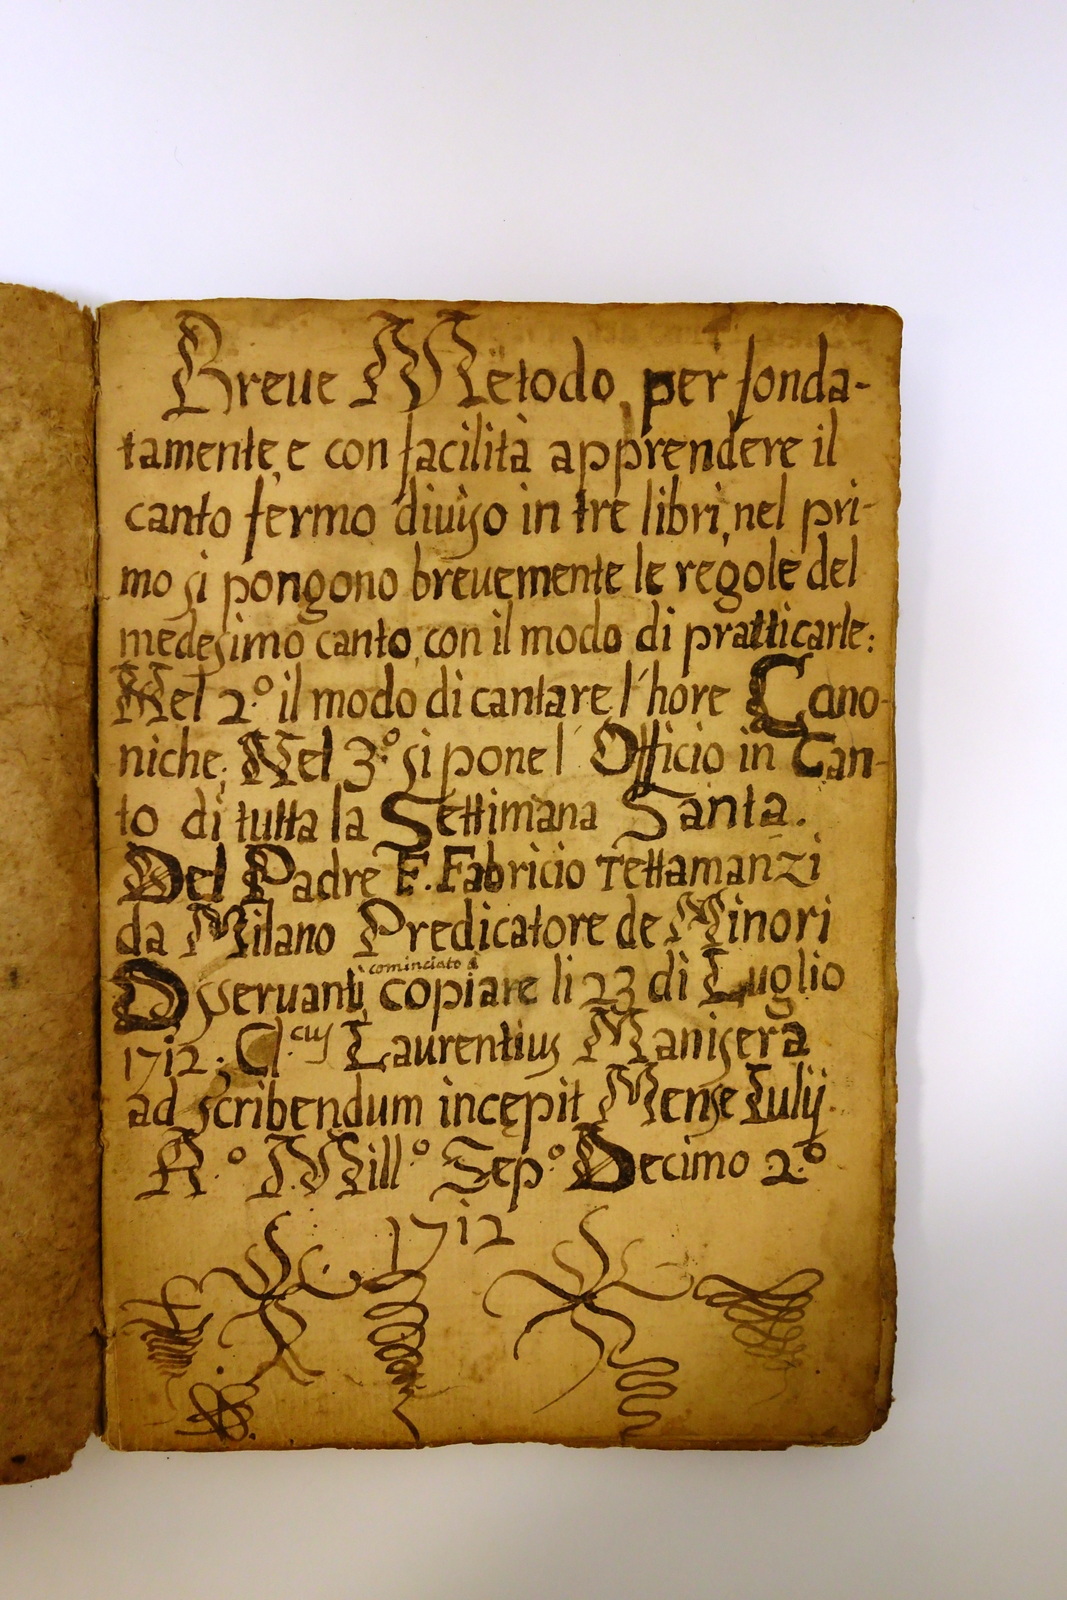 Breue Metodo, per fonda-
tamente, e con facilità apprendere il
canto fermo diuiso in tre libri, nel pri-
mo si pongono breuemente le regole del
medesimo canto, con il modo di pratticarle:
Nel 2.º il modo di cantare l'hore Cano-
niche; Nel 3.º si pone l'Officio in Can-
to di tutta la Settimana Santa.
Del Padre F. Fabricio Tettamanzi
da Milano Predicatore de Minori
cominciato à
Osseruanti, copiare li 23 di Luglio
1712; Cl.cus Laurentius Manisera
ad scribendum incępit Mense Iulij.
A.º Mill.º Sep.º Decimo 2.º
1712